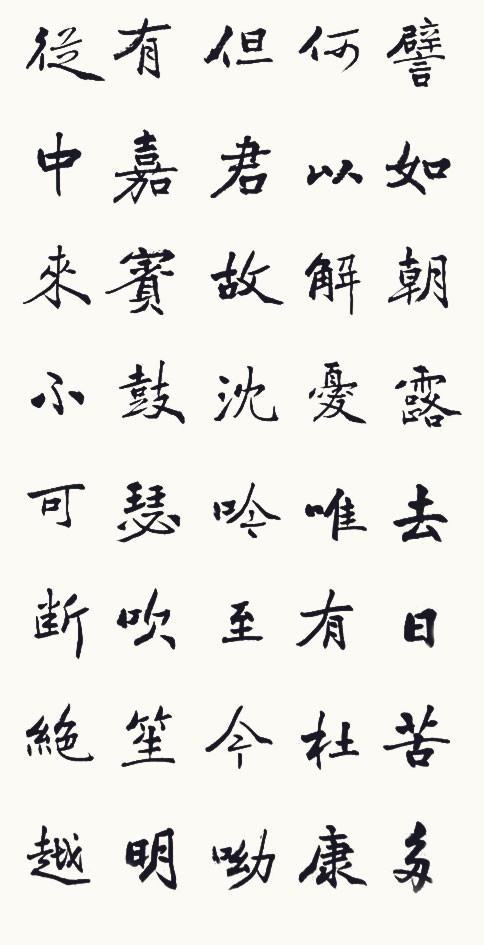 譬如朝露去日苦多
何以解憂唯有杜康
但君故沈吟至今呦
有嘉賓鼓瑟吹笙明
從中來不可断絕越